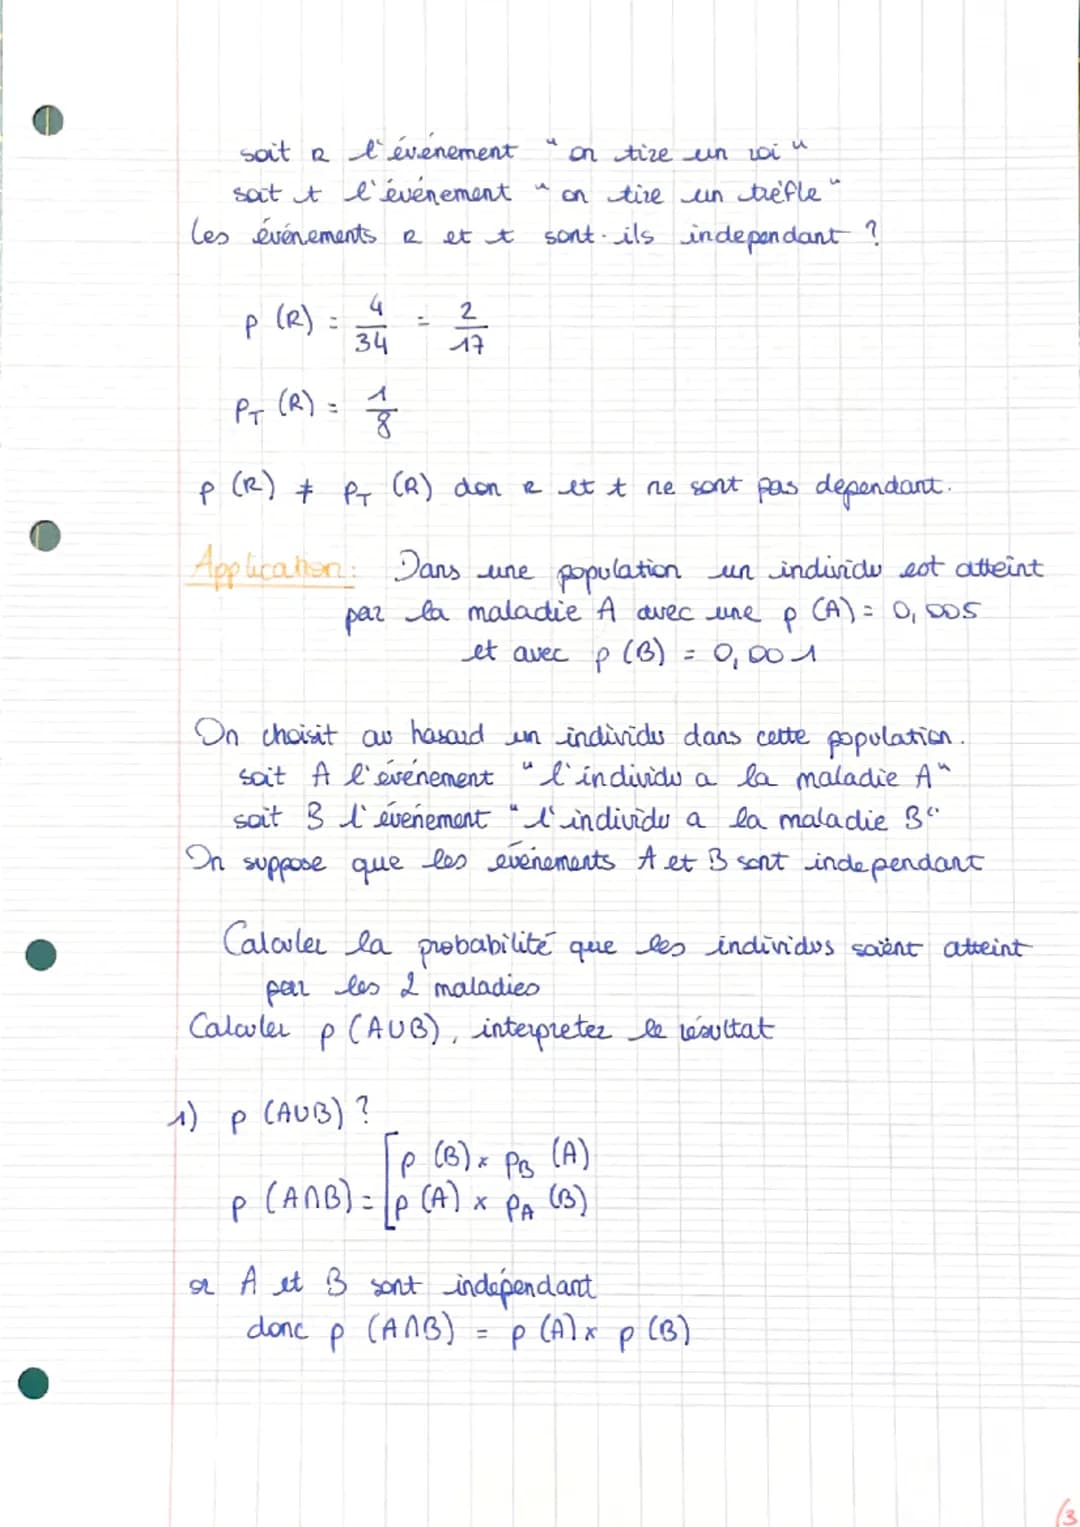 soit R l'événement " on tire un roi "
soit t l'événement " on tire un trèfle "
Les événements R et t sont-ils independant ?
p (R) = 4/34 = 2/17
P_T (R) = 1/8
p (R) ≠ P_T (R) don R et t ne sont pas dépendant.
Application : Dans une population un individu est atteint
par la maladie A avec une p (A) = 0,005
et avec p (B) = 0,001
On choisit au hasard un individu dans cette population.
soit A l'événement " l'individu a la maladie A "
soit B l'événement " l'individu a la maladie B "
On suppose que les événements A et B sont independant
Calculer la probabilité que les individus soient atteint
par les 2 maladies
Calculer p (A∪B), interpreter le résultat
1) p (A∪B) ?
p (A∩B) = [ p (B) × P_B (A)
p (A) × P_A (B)
or A et B sont indépendant
donc p (A∩B) = p (A) × p (B)
(3